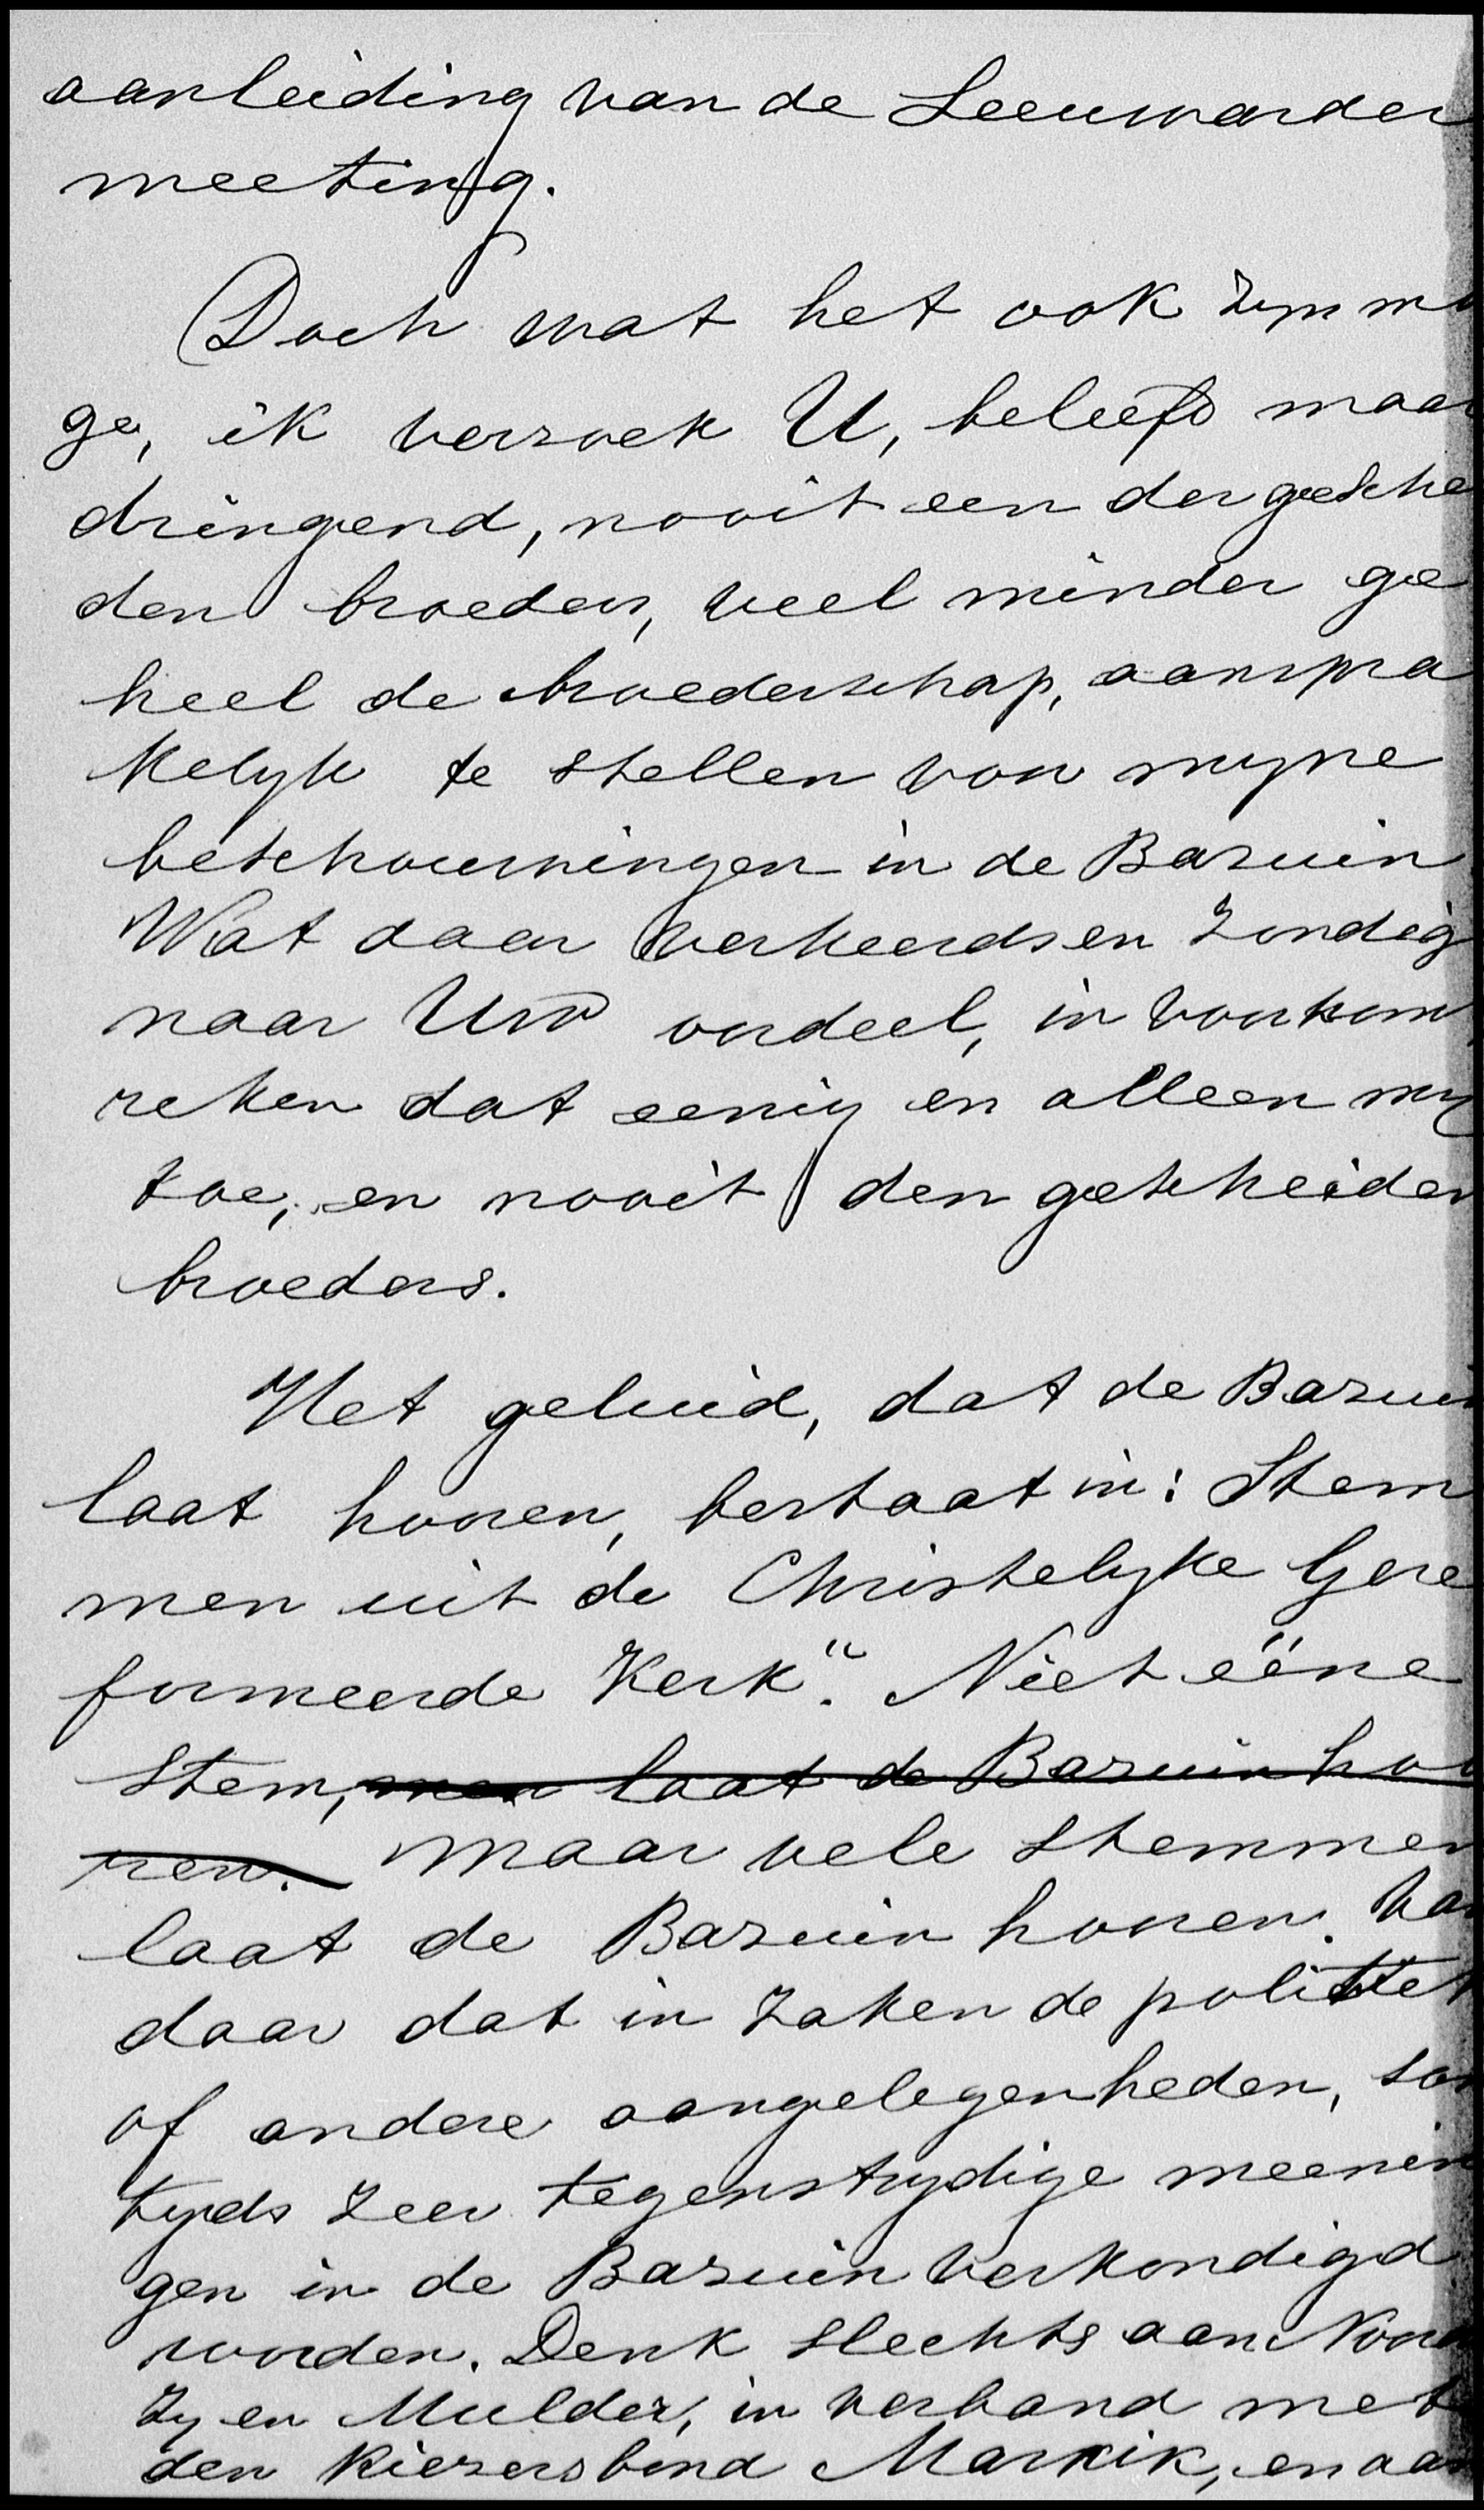 aanleiding van de Leeuwarder
meeting.
Doch wat het ook zyn mo
ge, ik verzoek U, beleefd maar
dringend, nooit een der geschei
den broeders, veel minder ge
heel de broederschap, aanspra
kelyk te stellen voor myne
beschouwingen in de Bazuin
Wat daar verkeerds en zondig
naar Uw oordeel, in voorkom
reken dat eenig en alleen my
toe, en nooit den gescheiden
broeders.
Het geluid, dat de Bazuin
laat hooren, bestaat in: Stem
men uit de Christelyke Gere
formeerde Kerk". Niet ééne
stem, laat de Bazuin hoo
ren. maar vele stemmen
laat de Bazuin hooren. Van
daar dat in zaken de politiek
of andere aangelegenheden, som
tyds zeer tegenstrydige meenin
gen in de Bazuin verkondigd
worden. Denk slechts aan Noord
zy en Mulder, in verband met
den kiezersbond Marnix, en aan